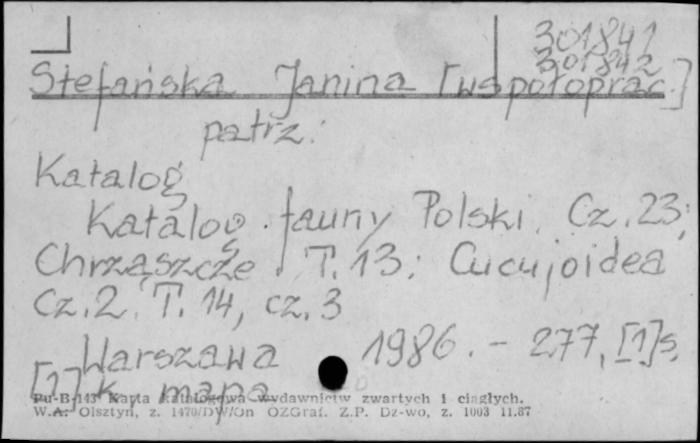 301841
301842
Stefańska Janina [współoprac.]
patrz:
Katalog
Katalog fauny Polski. Cz. 23;
Chrząszcze. T. 13: Cucujoidea
cz. 2. T. 14, cz. 3
Warszawa 1986. - 277, [1] s,
[1] k. mapa
Pu-B-143 Karta katalogowa wydawnictw zwartych i ciągłych.
W.A. Olsztyn, z. 1470/DW/On OZGraf. Z.P. Dz-wo, z. 1003 11.87